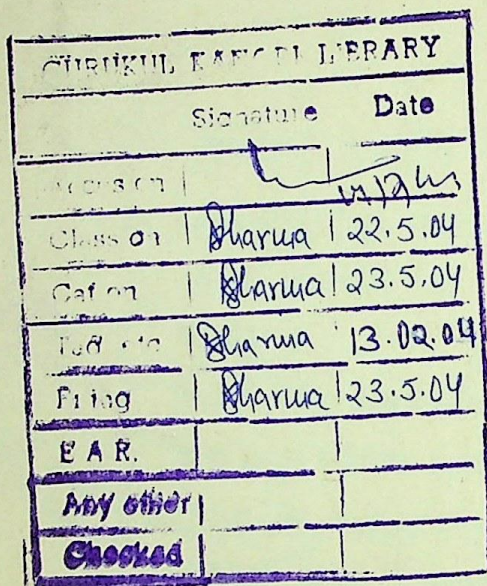 GURUKUL KANGRI LIBRARY
Signature Date
Class on Sharma 22.5.04
Cat on Sharma 23.5.04
Sharma 13.02.04
Filing Sharma 23.5.04
E A R.
Any other
Checked